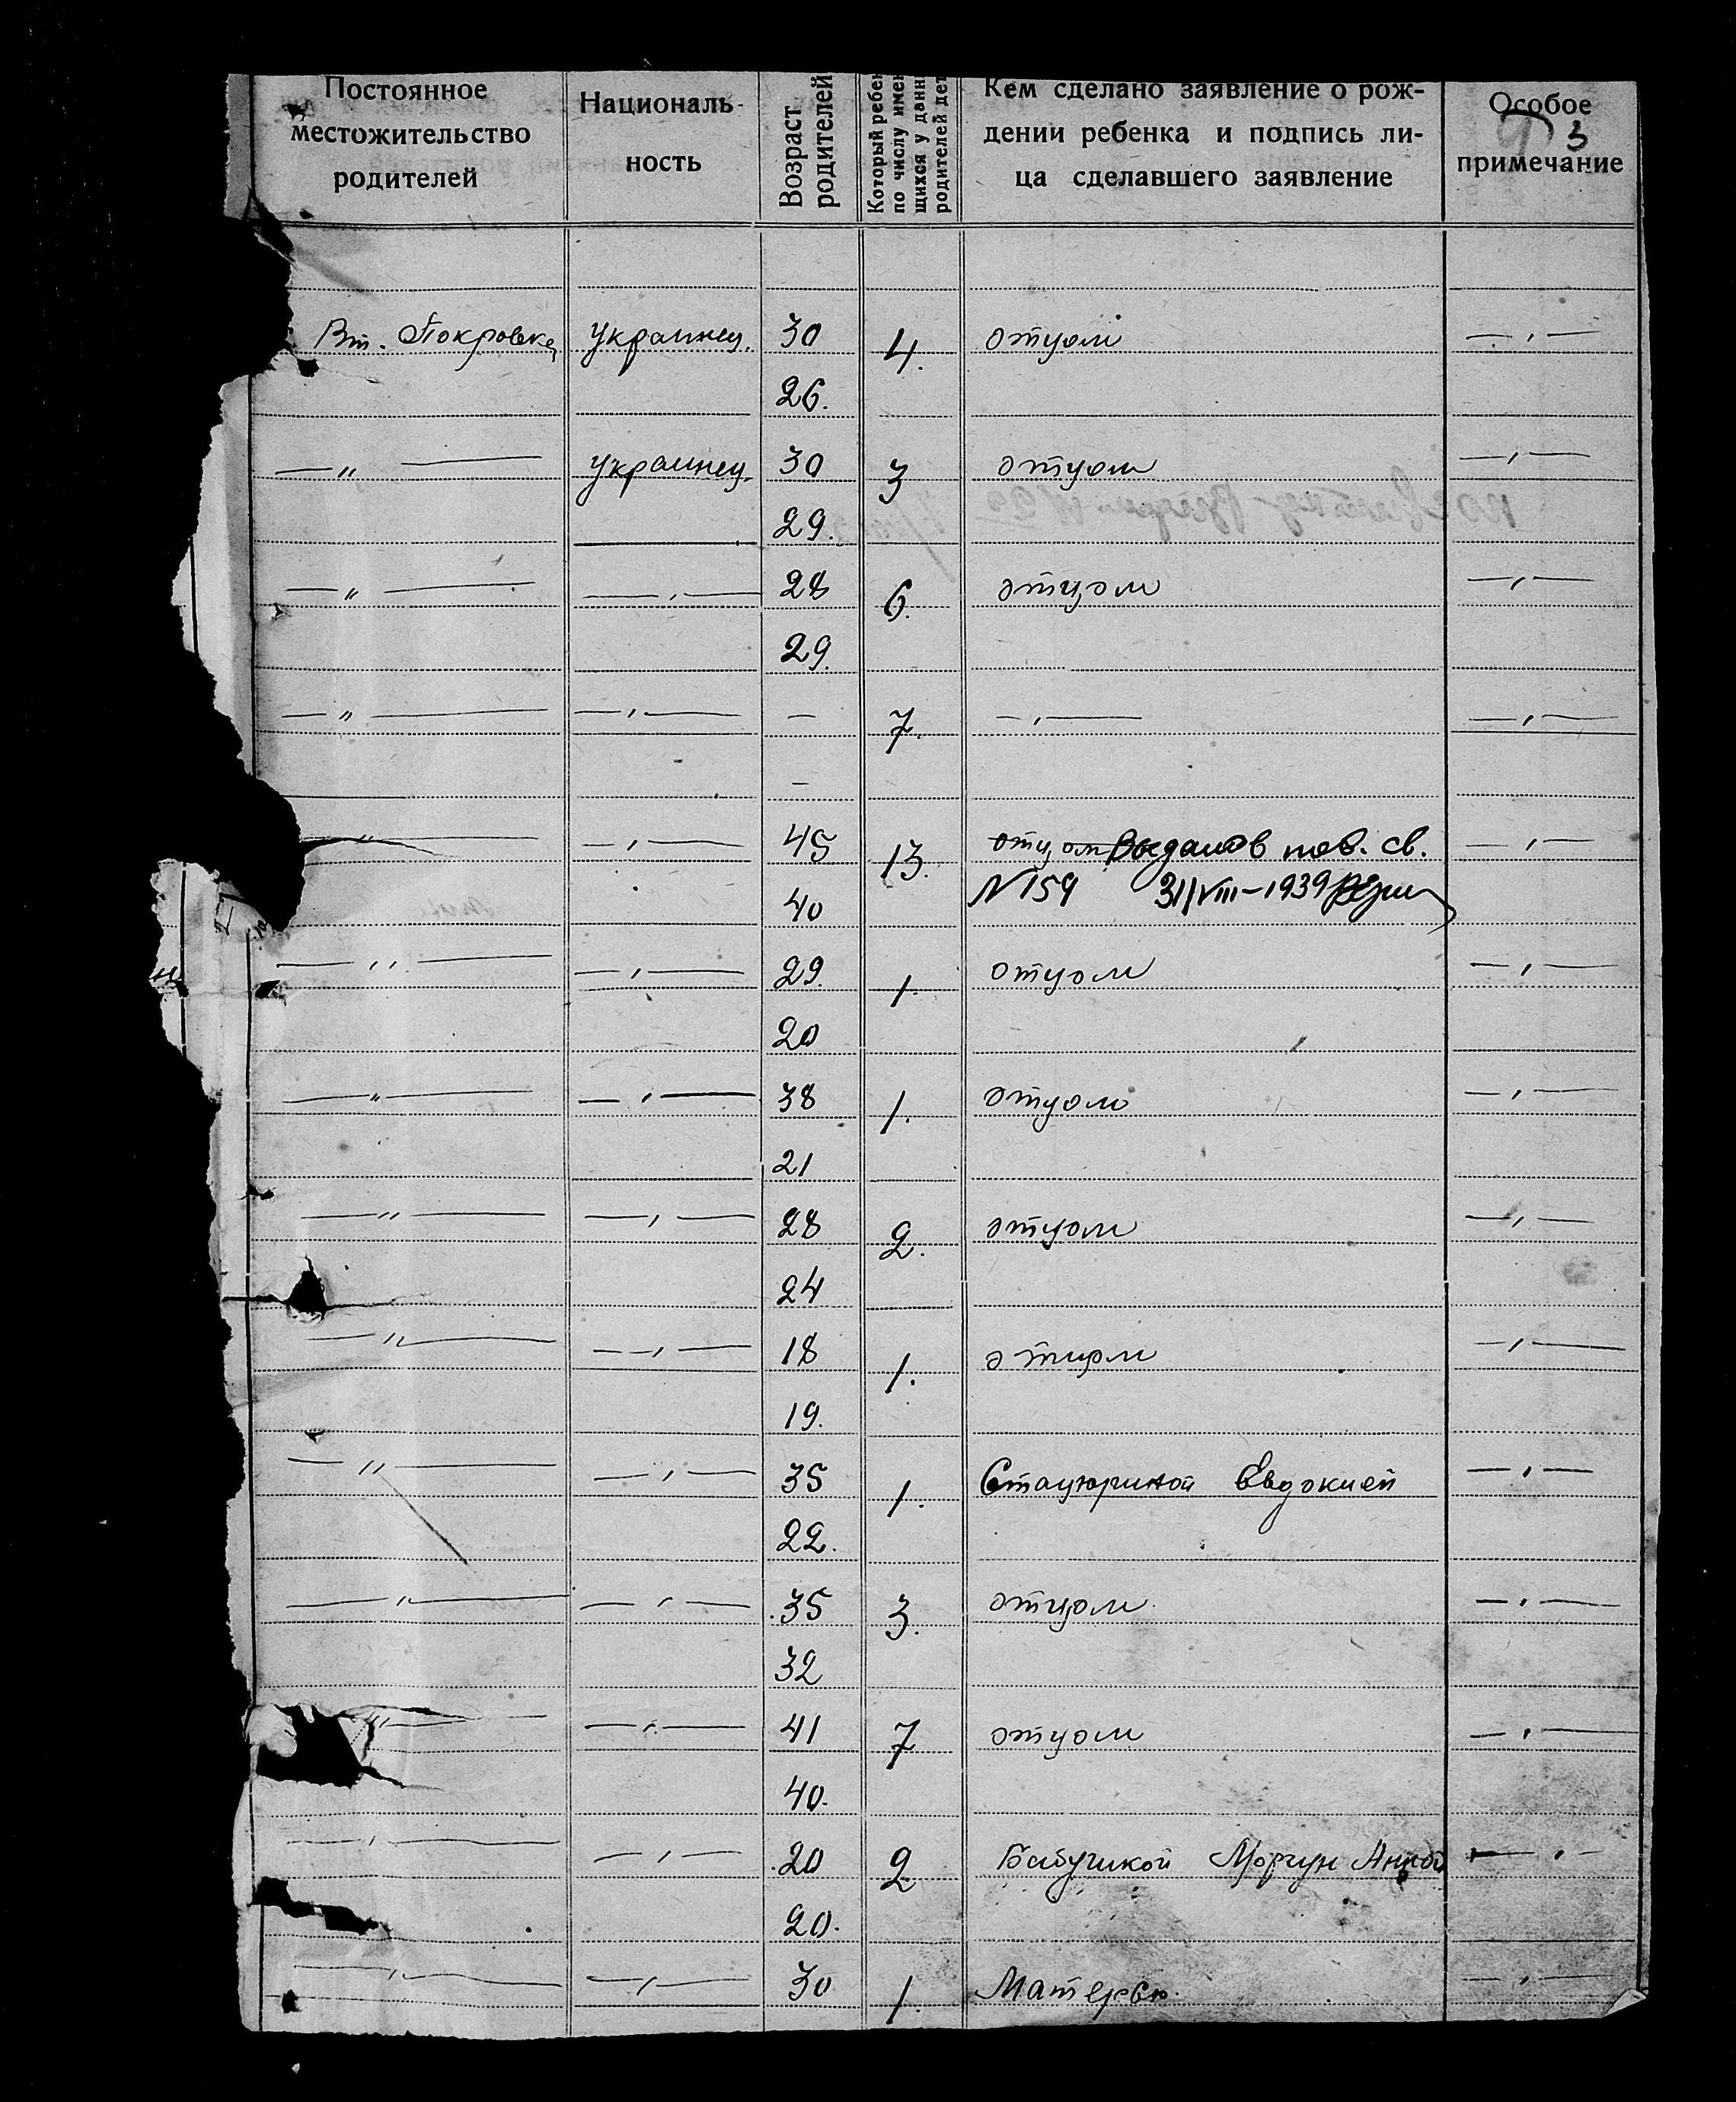 Постоянное местожительство родителей
Националь- ность
Возраст родителей
Который ребен по числу имею щихся у данн родителей дет
Кем сделано заявление о рож- дении ребенка и подпись ли- ца сделавшего заявление
Особое примечание
3
Вт. Покровка украинец. 30 4. отцом — „ —
26.
— „ — украинец. 30 3 отцом — „ —
29.
— „ — — „ — 28 6. отцом — „ —
29.
— „ — — „ — — 7. — „ — — „ —
—
— „ — — „ — 45 13. отцом Выдано в пов. св. — „ —
40 N 159 31/VIII–1939
— „ — — „ — 29. 1. отцом — „ —
20
— „ — — „ — 38 1. отцом — „ —
21
— „ — — „ — 28 2. отцом — „ —
24
— „ — — „ — 18 1. отцом — „ —
19.
— „ — — „ — 35 1. Евдокией — „ —
22.
— „ — — „ — 35 3. отцом — „ —
32
— „ — — „ — 41 7 отцом — „ —
40.
— „ — — „ — 20 2 Бабушкой Моргун Анной — „ —
20.
— „ — — „ — 30 1. Матерью. — „ —